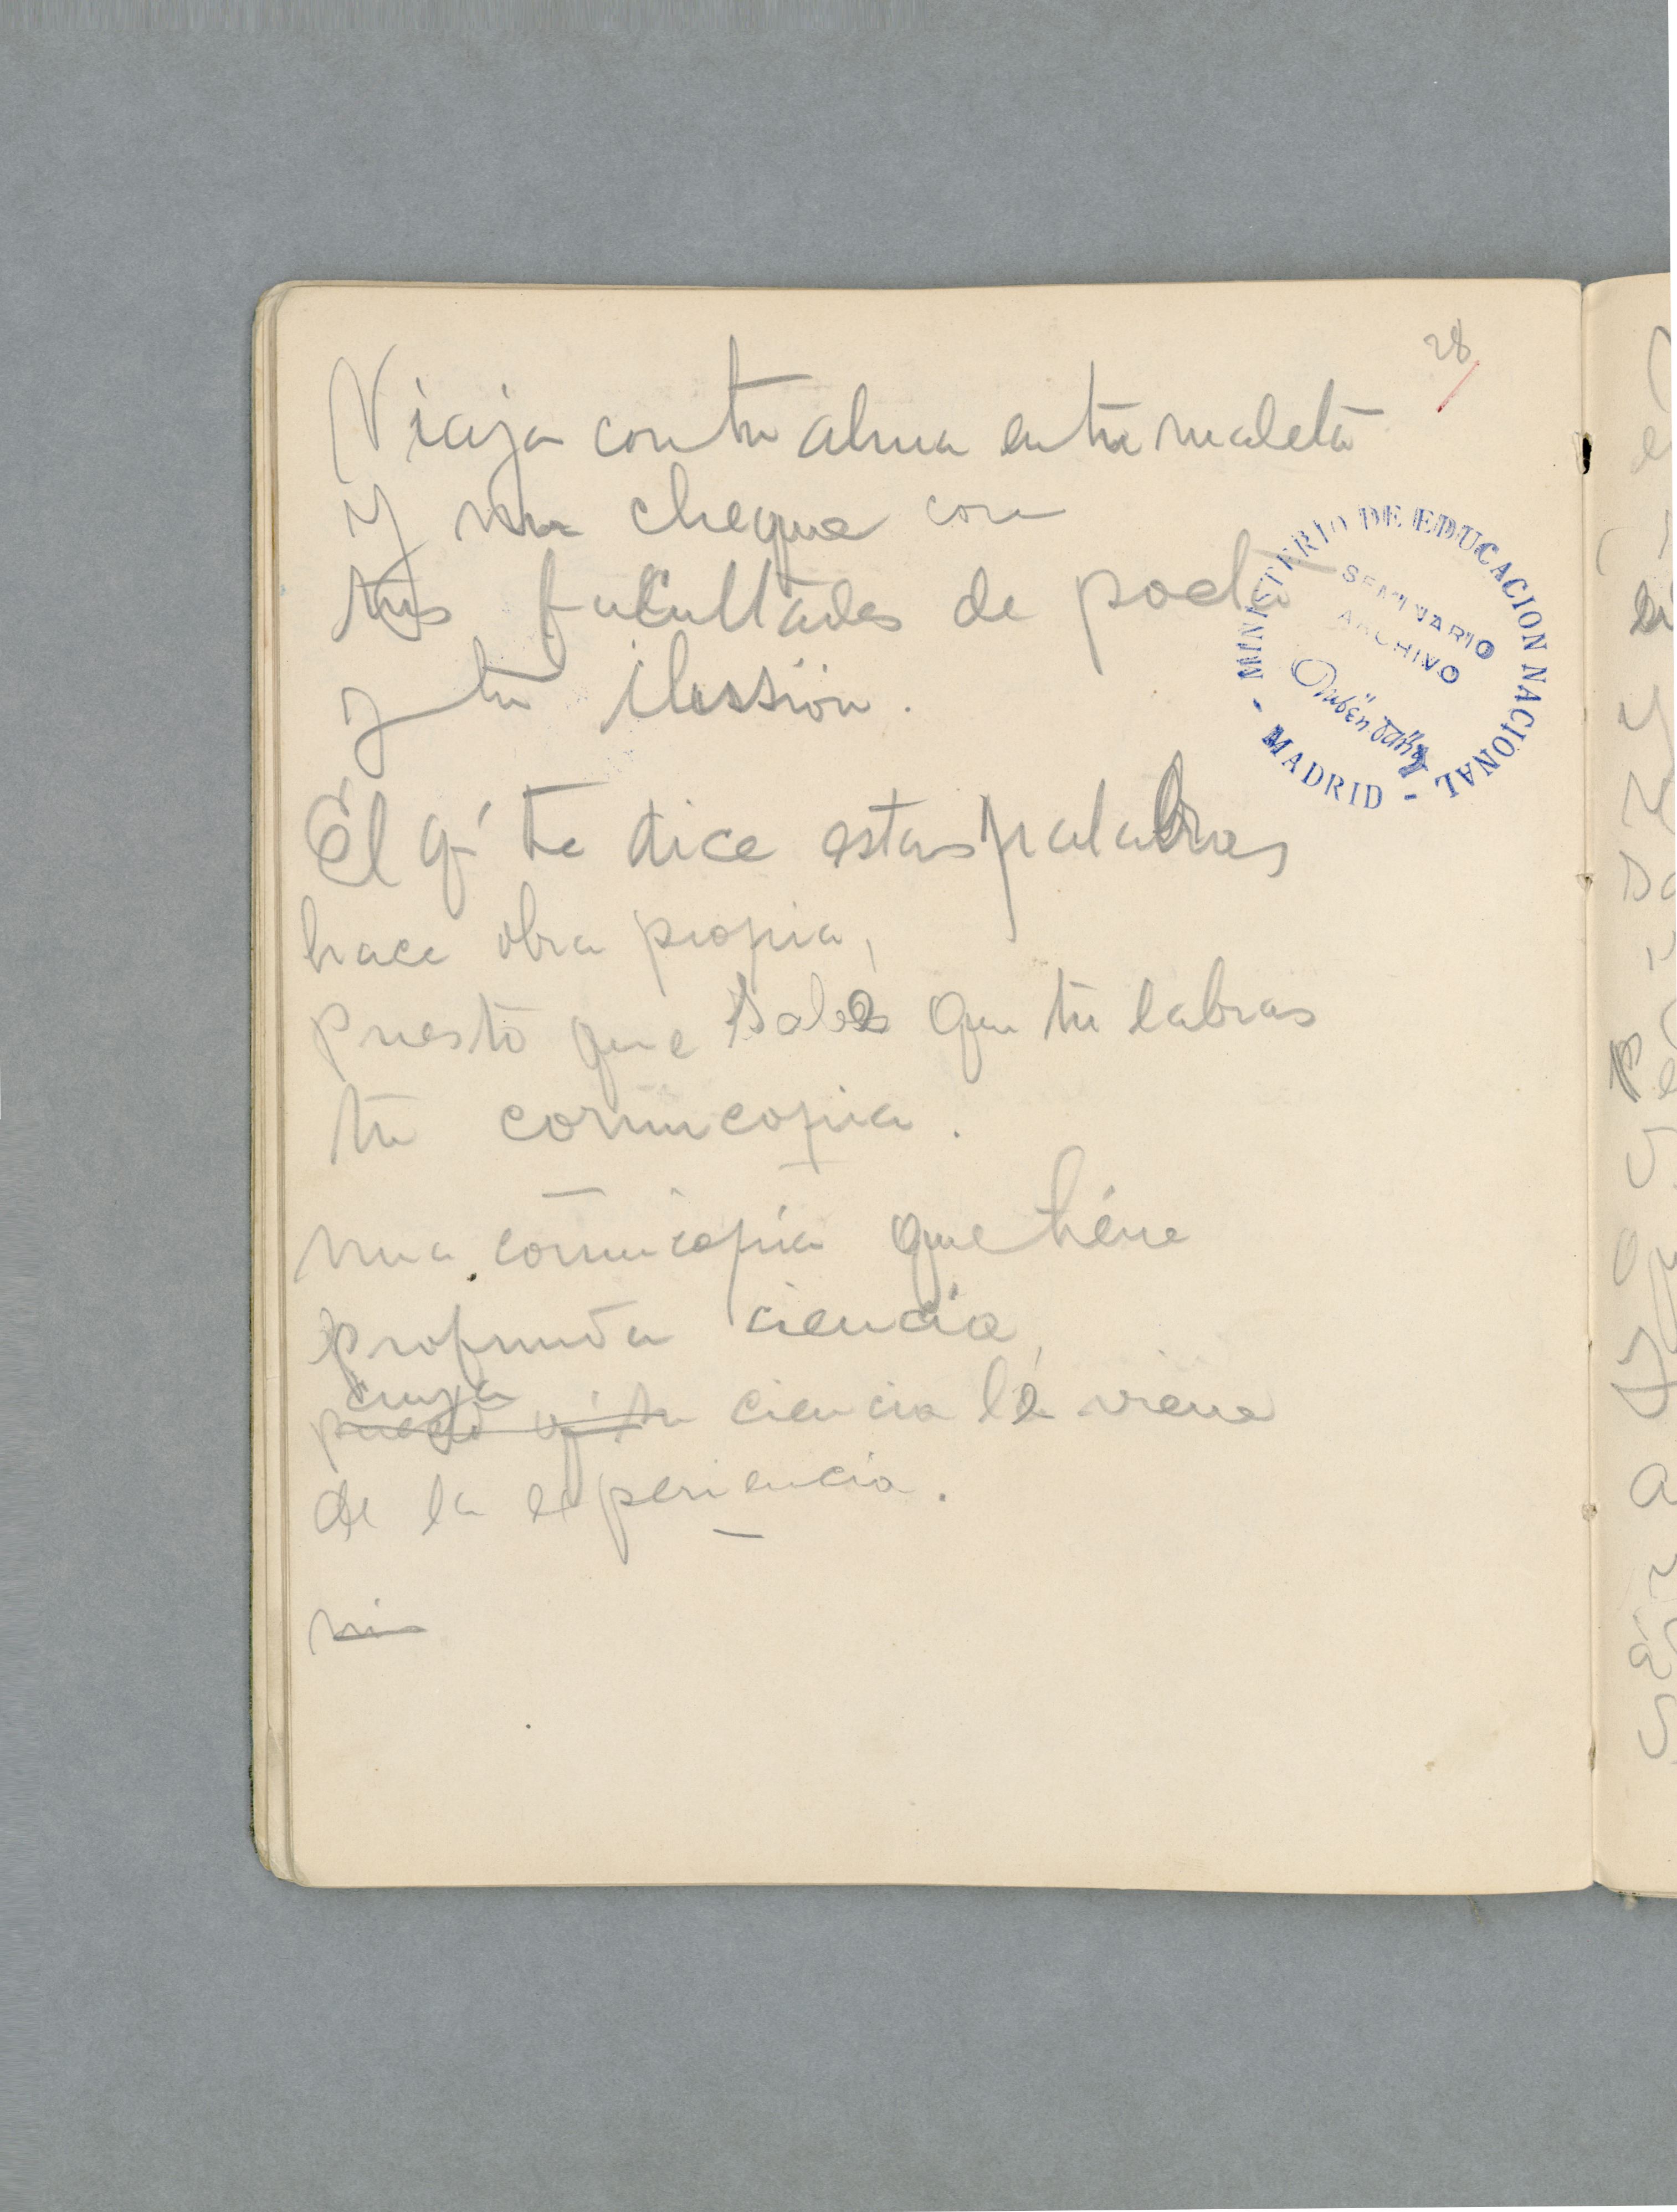 28
Viaja con tu alma en tu maleta
y un cheque con
tus facultades de poeta
y tu ilussión.
El q' te dice estas palabras
hace obra propia,
puesto que sabe que tu labras
tu cornucopia.
una cornucopia que tiene
profunda ciencia,
cuya
puesto q' tu ciencia le viene
de la experiencia.
MINISTERIO DE EDUCACION NACIONAL - MADRID -
SEMINARIO
ARCHIVO
Rubén Darío